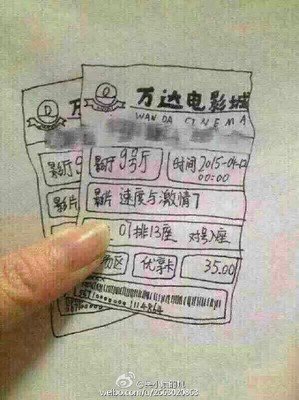 万达电影城
WAN DA CINEMA
影厅 9
影厅 9号厅 时间 2015-04-12
00:00
影片
影片 速度与激情7
07排13座 对号入座
区 优享卡 35.00
1114864
weibo.com/u/2663020863